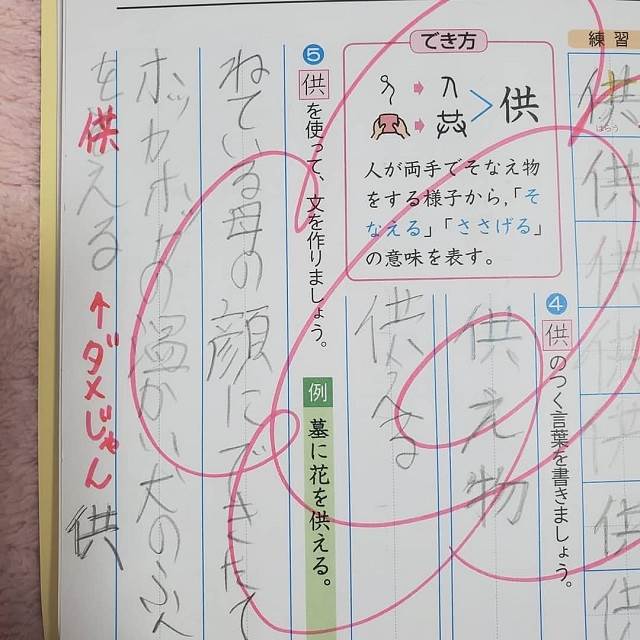 練習
供
供
供
供
供
供
でき方
人 供
人が両手でそなえ物
をする様子から,「そ
なえる」「ささげる」
の意味を表す。
④ 供のつく言葉を書きましょう。
供え物
供える
⑤ 供を使って、文を作りましょう。
例 墓に花を供える。
ねている母の顔にできたて
ホッカホカの温かい犬のふん
を供える ↑ダメじゃん 供